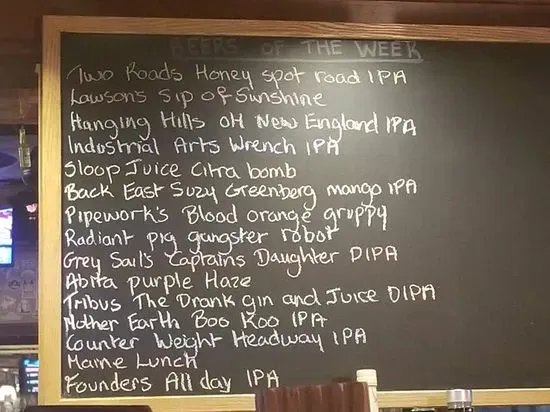 BEERS OF THE WEEK
Two Roads Honey spot road IPA
Lawson's Sip of Sunshine
Hanging Hills OH New England IPA
Industrial Arts Wrench IPA
Sloop Juice Citra bomb
Back East Suzy Greenberg mango IPA
Pipework's Blood orange gruppy
Radiant pig gangster robot
Grey Sail's Captains Daughter DIPA
Abita purple Haze
Tribus The Drank gin and Juice DIPA
Mother Earth Boo Koo IPA
Counter Weight Headway IPA
Maine Lunch
Founders All day IPA